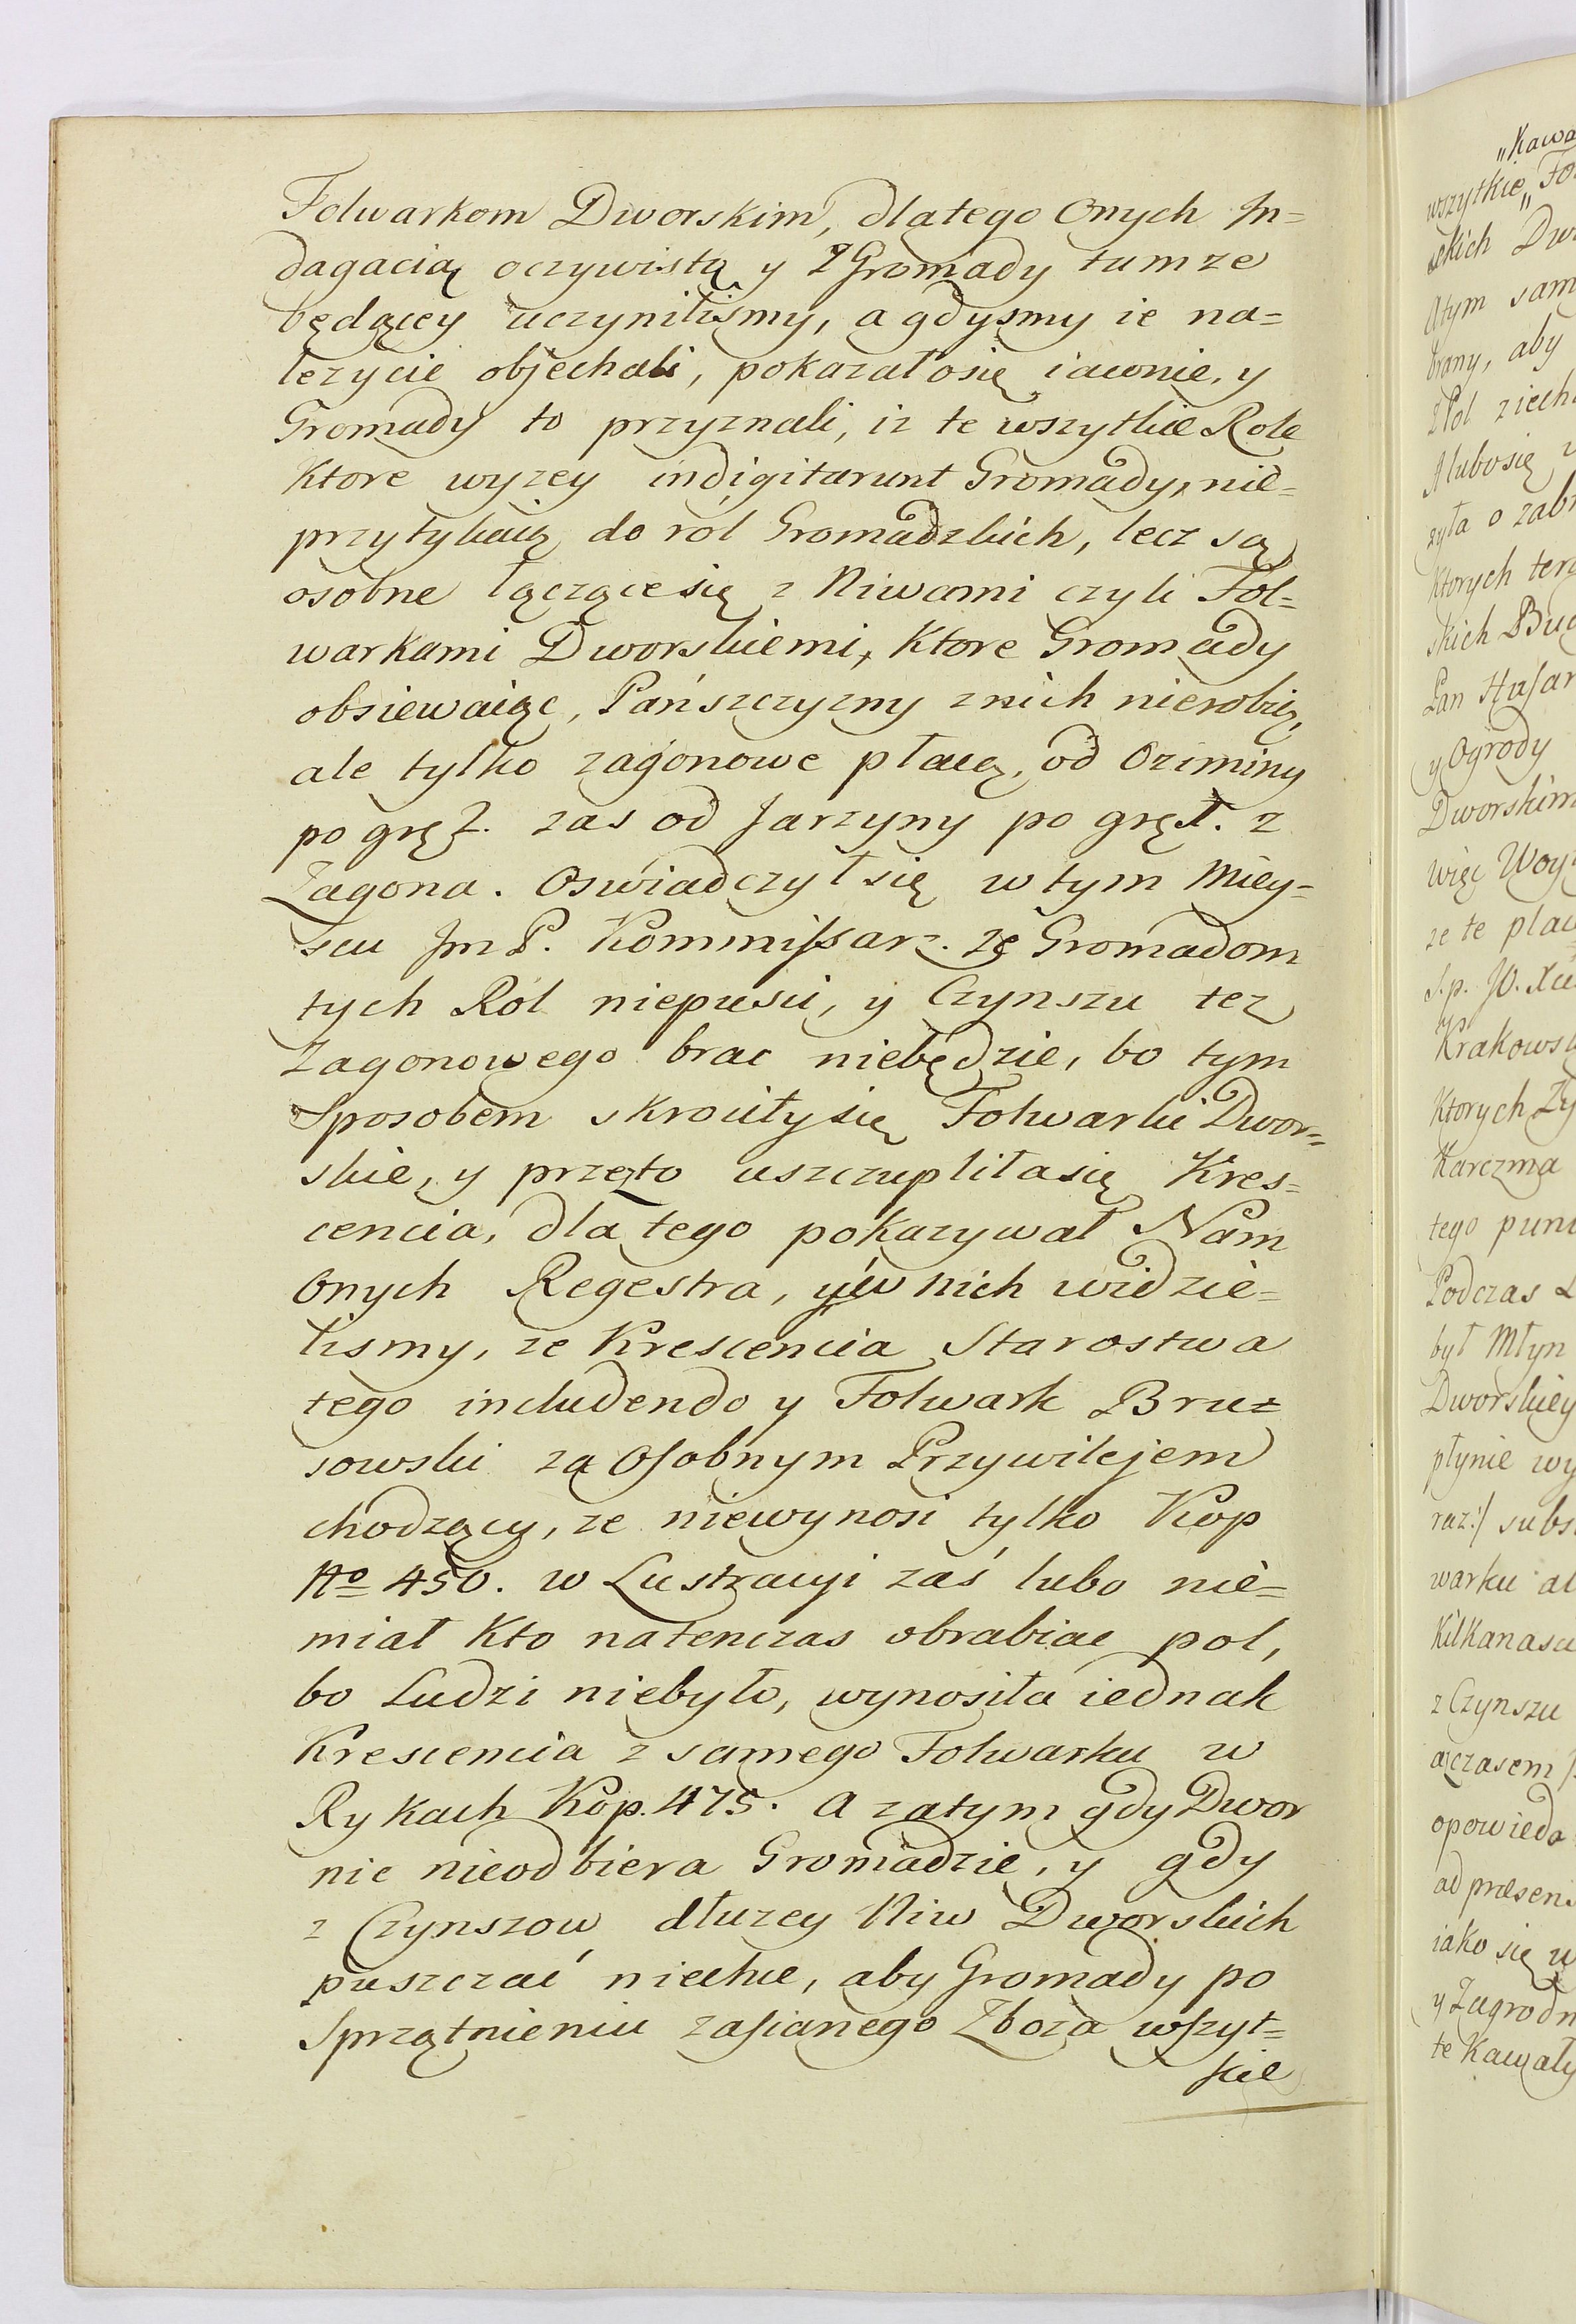 Folwarkom Dworskim, dlatego Onych In=
dagacią oczywistą y z Gromady tumze
będącey uczyniliśmy, a gdyśmy ie na=
lezycie objechali, pokazałosię iawnie, y
Gromady to przyznali, iz te wszytkie Role
Ktore wyzey indigitarunt Gromady, nie=
przytykaią do ról Gromadzkich, lecz są
osobne łączącesię z Niwami czyli Fol=
warkami Dworskiemi, Ktore Gromady
obsiewaiąc, Pańszczyzny znich nierobią,
ale tylko zagonowe płacą, od Oziminy
po grę 2. zas od Jarzyny po grę 1. z
Zagona. Oswiadczył się w tym Miey=
scu Jm P. Kommissarz. ze Gromadom
tych Ról niepusci, y Czynszu tez
Zagonowego brac niebędzie, bo tym
Sposobem skrociły się Folwarki Dwor=
skie, y przezto uszczupliłasię Kres=
cencia, dla tego pokazywał Nam
Onych Regestra, y w nich widzie=
lismy, ze Krescencia Starostwa
tego includendo y Folwark Bruz
sowski za Osobnym Przywilejem
chodzący, ze niewynosi tylko Kop
No 450. w Lustracyi zaś lubo nie=
miał Kto natenczas obrabiac pol,
bo Ludzi niebyło, wynosiła iednak
Krescencia z samego Folwarku w
Rykach Kop. 475. A zatym gdy Dwor
nic nieodbiera Gromadzie, y gdy
z Czynszow dłuzey Niw Dworskich
puszczać niechce, aby Gromady po
Sprzątnieniu zasianego Zboza wszyt=
skie
„Kawa
wszytkie „Fo
skich Dw
Atym sam
brany, aby
z Pol ziech
A lubosię
zyła o zabr
Ktorych ter
skich Bud
Pan Husar
y Ogrody
Dworskim
więc Woy
ze te plac
Krakows
Ktorych Zy
Karczma
tego pun
Podczas L
był Młyn
Dworskiey
płynie wy
raz:/ subs
warku al
Kilkanasc
z Czynszu
aczasem
opowieda
ad præsens
iako się w
y Zagrodn
te Kawały